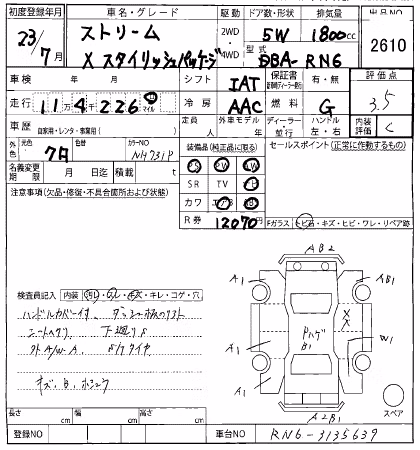 初度登録年月 車名・グレード 駆動 ドア数・形状 排気量 出品NO
23/7月 ストリーム 2WD 5W 1800cc 2610
X スタイリッシュパッケージ 4WD 型式 DBA-RN6
車検 年 月 シフト IAT 保証書 有・無 評価点
走行 11万4千226 マイル 冷房 AAC 燃料 G 3.5
車歴 自家用・レンタ・事業用( ) 定員 人 外車モデル 年 ディーラー・並行 ハンドル 左・右 内装評価 C
外色 元色 色替 カラーNO NH731P 装備品(純正品に限る) セールスポイント(正常に作動するもの)
PS PW
名義変更期限 月 日 積載 t SR TV
注意事項(欠品・修復・不具合箇所および状態) カワ エアB
R券 12070円 Fガラス トビ石・キズ・ヒビ・ワレ・リペア跡
AB2
A1 AB1
検査員記入 内装 キレ・コゲ・穴
ハンドルカバー付
シートヘタリ 下廻りサ
XX
ハゲ
B1
A1 A1 W1
外A/W A
キズ、B、ホシュウ
A1
A2B1 スペア
長さ cm 幅 cm 高さ cm
登録NO 車台NO RN6-3135639